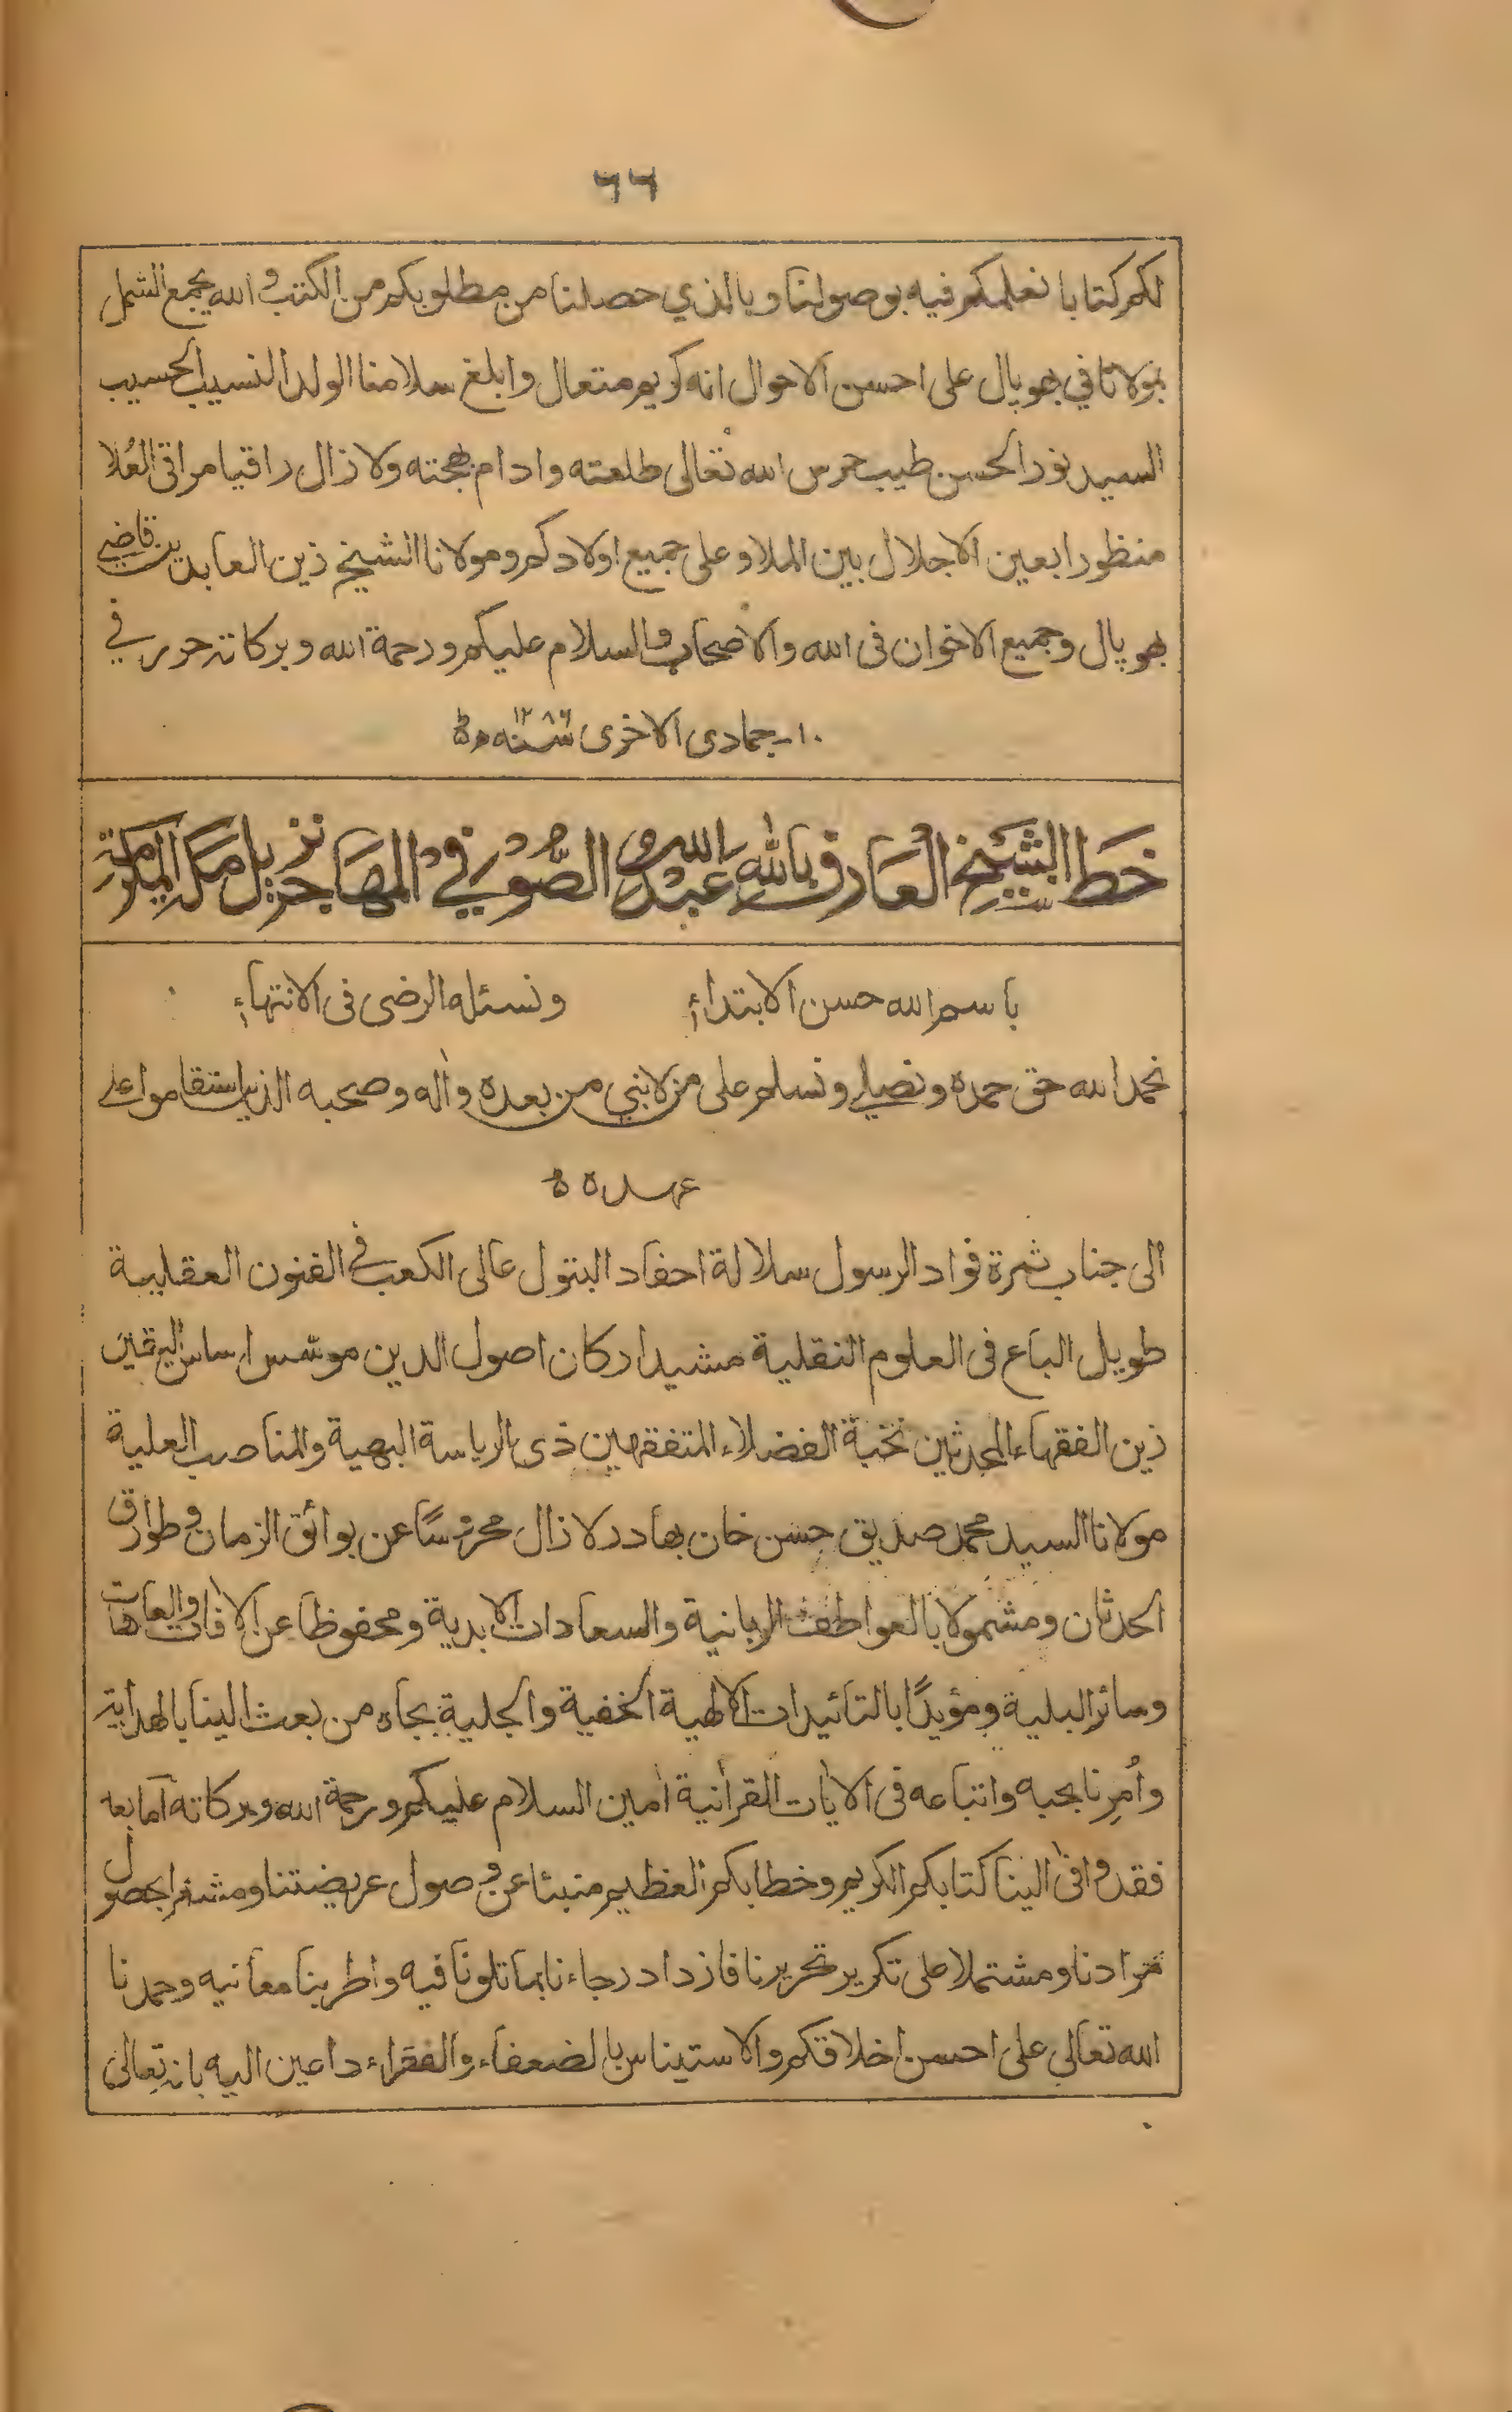 ٦٦
لكم كتابا نعلمكم فيه بوصولنا وبالذي حصلنا من مطلوبكم من الكتب والله يجمع الشمل
بمولانا في بهوپال على احسن الاحوال انه كريم متعال وابلغ سلامنا الولد النسيب الحسيب
السيد نور الحسن طيب حرس الله تعالى طلعته وادام بهجته ولا زال راقيا مراقي العُلا
منظورا بعين الاجلال بين الملا وعلى جميع اولادكم ومولانا الشيخ زين العابدين قاضي
بهوپال وجميع الاخوان فى الله والاصحاب والسلام عليكم ورحمة الله وبركاته حرر في
١٠- جمادى الاخرى سنه ١٢٨٦ ه
خط الشيخ العارف بالله عبد الله الصوفي المهاجر نزيل مكة المكرمة
باسم الله حسن الابتداء ونسئله الرضى فى الانتهاء
نحمد الله حق حمده ونصلي ونسلم على من لا نبي من بعده واٰله وصحبه الذين استقاموا على
عهده ه
الى جناب ثمرة فواد الرسول سلالة احفاد البتول عالى الكعب في الفنون العقلية
طويل الباع فى العلوم النقلية مشيد اركان اصول الدين موسّس اساس اليقين
زين الفقهاء المحدثين نخبة الفضلاء المتفقهين ذى الرياسة البهية والمناصب العلية
مولانا السيد محمد صديق حسن خان بهادر لا زال محروسًا عن بوائق الزمان وطوارق
الحدثان ومشمولا بالعواطف الربانية والسعادات الابدية ومحفوظا عن الاٰفات والعاهات
وسائر البلية ومؤيدًا بالتائيدات الالهية الخفية والجلية بجاه من بعث الينا بالهداية
واُمِرنا بحبه واتباعه فى الاٰيات القراٰنية اٰمين السلام عليكم ورحمة الله وبركاته اما بعد
فقد وافىٰ الينا كتابكم الكريم وخطابكم العظيم منبئا عن وصول عريضتنا ومشعرا بحصول
مرادنا ومشتملا على تكرير تحريرنا فازداد رجاءنا بما تلونا فيه واطربنا معانيه وحمدنا
الله تعالى على احسن اخلاقكم والاستيناس بالضعفاء والفقراء داعين اليه بانه تعالىٰ